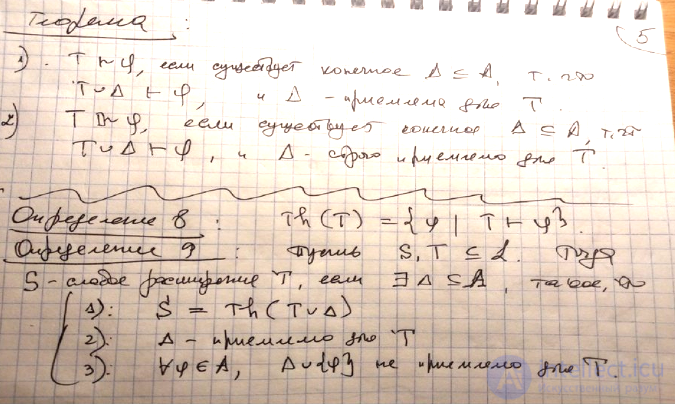 Теорема :
5
1). T ⊢ φ, если существует конечное Δ ⊆ A, т. что
T ∪ Δ ⊢ φ, и Δ – приемлемо для T.
2) T ⊩ φ, если существует конечное Δ ⊆ A, т. что
T ∪ Δ ⊢ φ, и Δ – строго приемлемо для T.
Определение 8 : Th(T) = {φ | T ⊢ φ}.
Определение 9 : Пусть S, T ⊆ L. Тогда
S – слабое расширение T, если ∃ Δ ⊆ A, такое, что
1): S = Th(T ∪ Δ)
2): Δ – приемлемо для T
3): ∀φ ∈ A, Δ ∪ {φ} не приемлемо для T